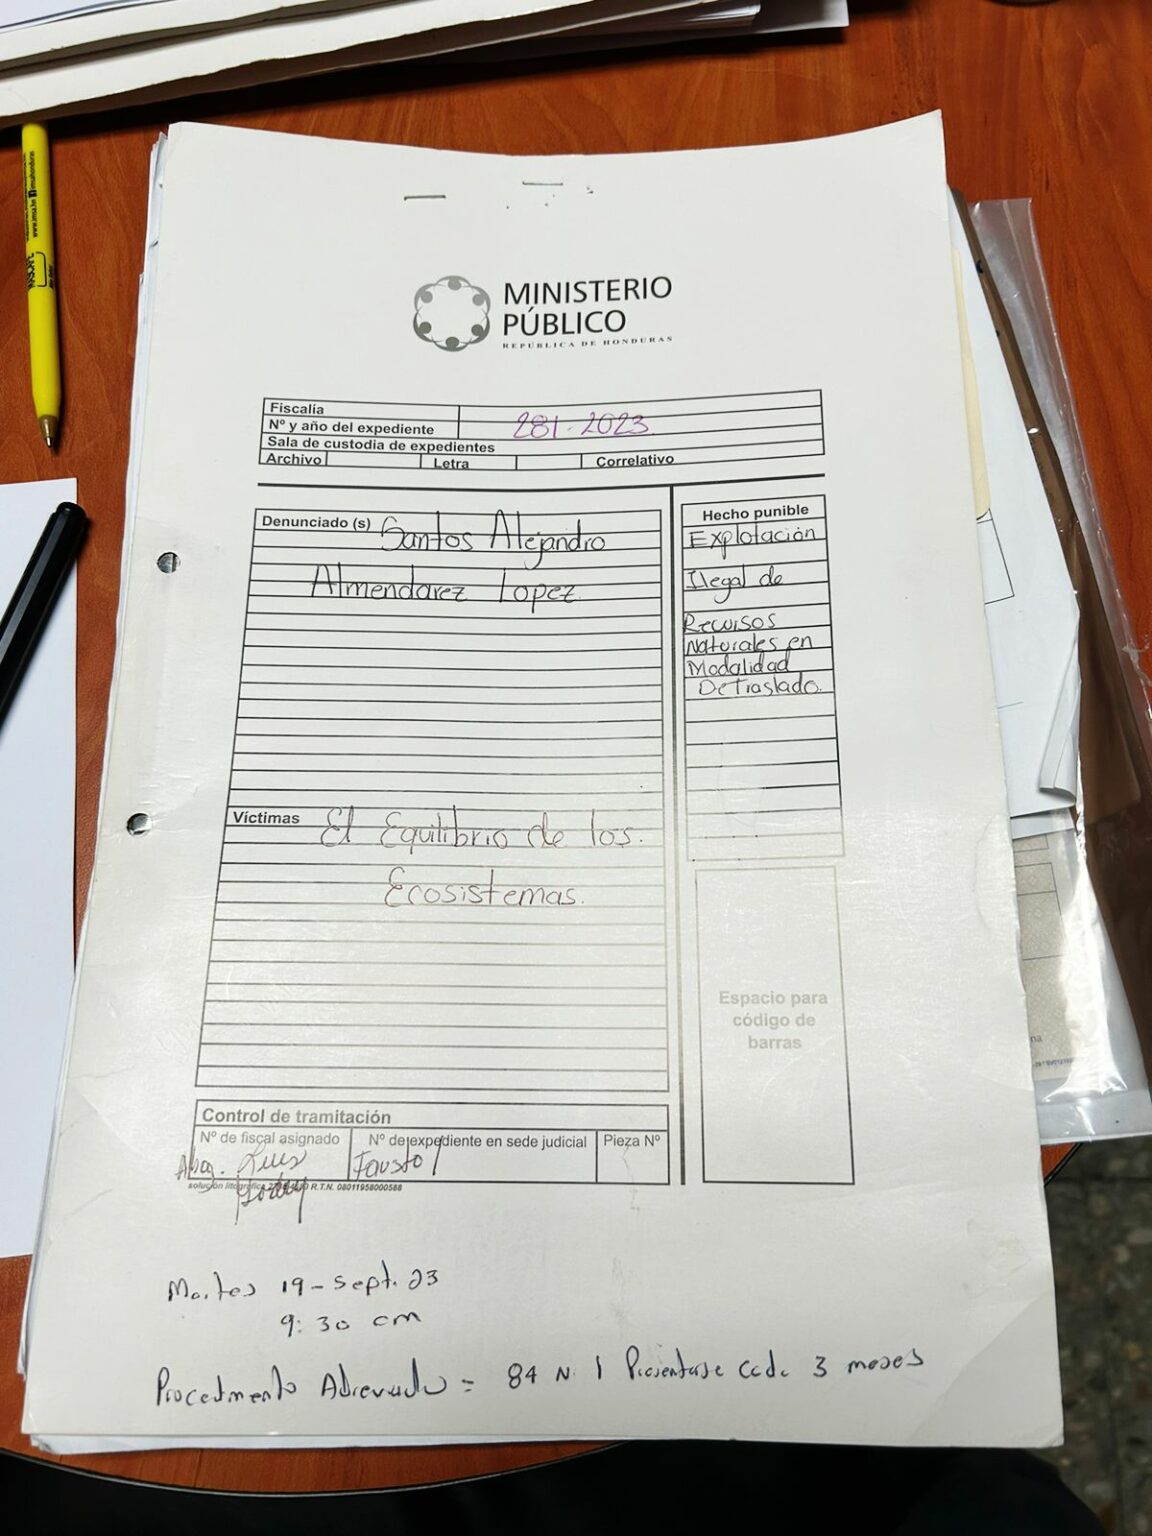 MINISTERIO
PÚBLICO
REPÚBLICA DE HONDURAS
Fiscalía
Nº y año del expediente 281-2023
Sala de custodia de expedientes
Archivo Letra Correlativo
Denunciado (s) Santos Alejandro
Almendarez Lopez
Hecho punible
Explotación
Ilegal de
Recursos
Naturales en
Modalidad
De Traslado.
Víctimas El Equilibrio de los.
Ecosistemas.
Espacio para
código de
barras
Control de tramitación
Nº de fiscal asignado Nº de expediente en sede judicial Pieza Nº
Abog. Luis Fausto
solución litográfica R.T.N. 08011958000588
Martes 19-Sept. 23
9:30 am
Procedimento Abreviado = 84 N. 1 Presentarse Cada 3 meses
www.imsa.hn imsahonduras